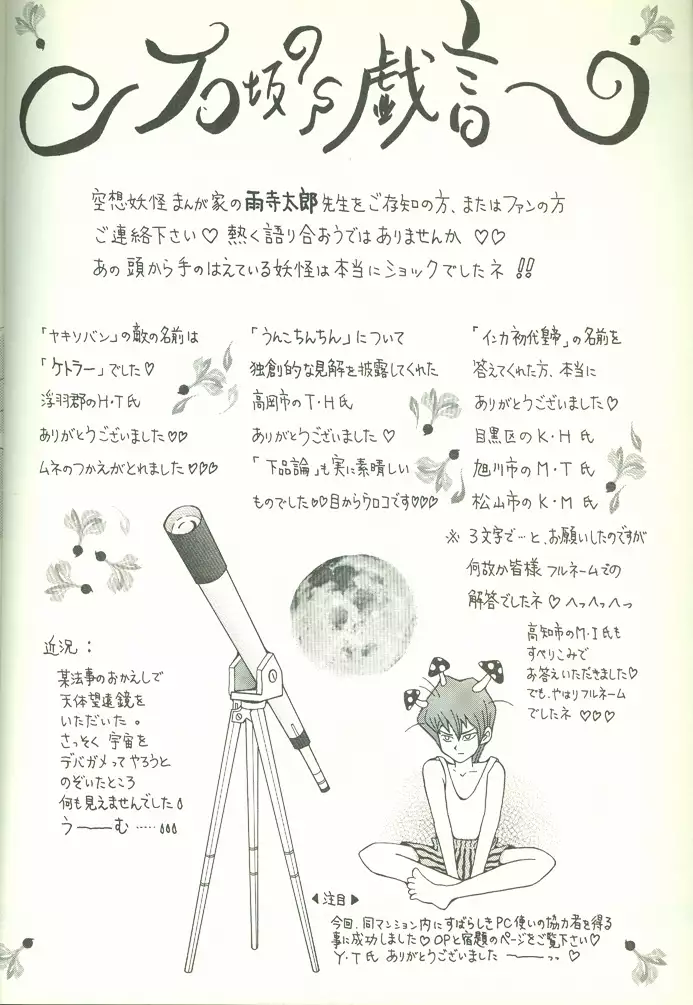 石坂's 戯言
空想妖怪まんが家の雨寺太郎先生をご存知の方、またはファンの方
ご連絡下さい♡ 熱く語り合おうではありませんか ♡♡
あの頭から手のはえている妖怪は本当にショックでしたネ !!
「ヤキソバン」の敵の名前は
「ケトラー」でした♡
浮羽郡のH・T氏
ありがとうございました♡♡
ムネのつかえがとれました♡♡♡
「うんこちんちん」について
独創的な見解を披露してくれた
高岡市のT・H氏
ありがとうございました♡
「下品論」も実に素晴しい
ものでした♡♡目からウロコです♡♡♡
「インカ初代皇帝」の名前を
答えてくれた方、本当に
ありがとうございました♡
目黒区のK・H氏
旭川市のM・T氏
松山市のK・M氏
※ 3文字で…と、お願いしたのですが
何故か皆様フルネームでの
解答でしたネ♡ へっへっへっ
高知市のM・I氏も
すべりこみで
お答えいただきました♡
でも、やはりフルネーム
でしたネ♡♡♡
近況:
某法事のおかえしで
天体望遠鏡を
いただいた。
さっそく宇宙を
デバガメってやろうと
のぞいたところ
何も見えませんでした
う――む ……
◀注目▶
今回、同マンション内にすばらしきPC使いの協力者を得る
事に成功しました♡OPと宿題のページをご覧下さい♡
Y・T氏 ありがとうございました ――っっ ♡